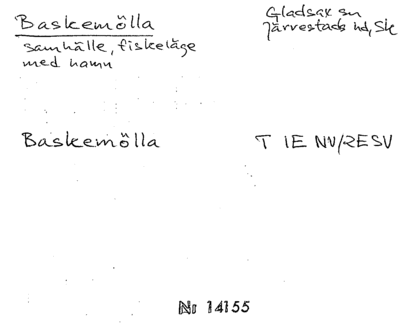 Baskemölla
samhälle, fiskeläge
med hamn
Gladsax sn
Järrestads hd, Sk
Baskemölla
T IE NV/RESV
Nr 14155